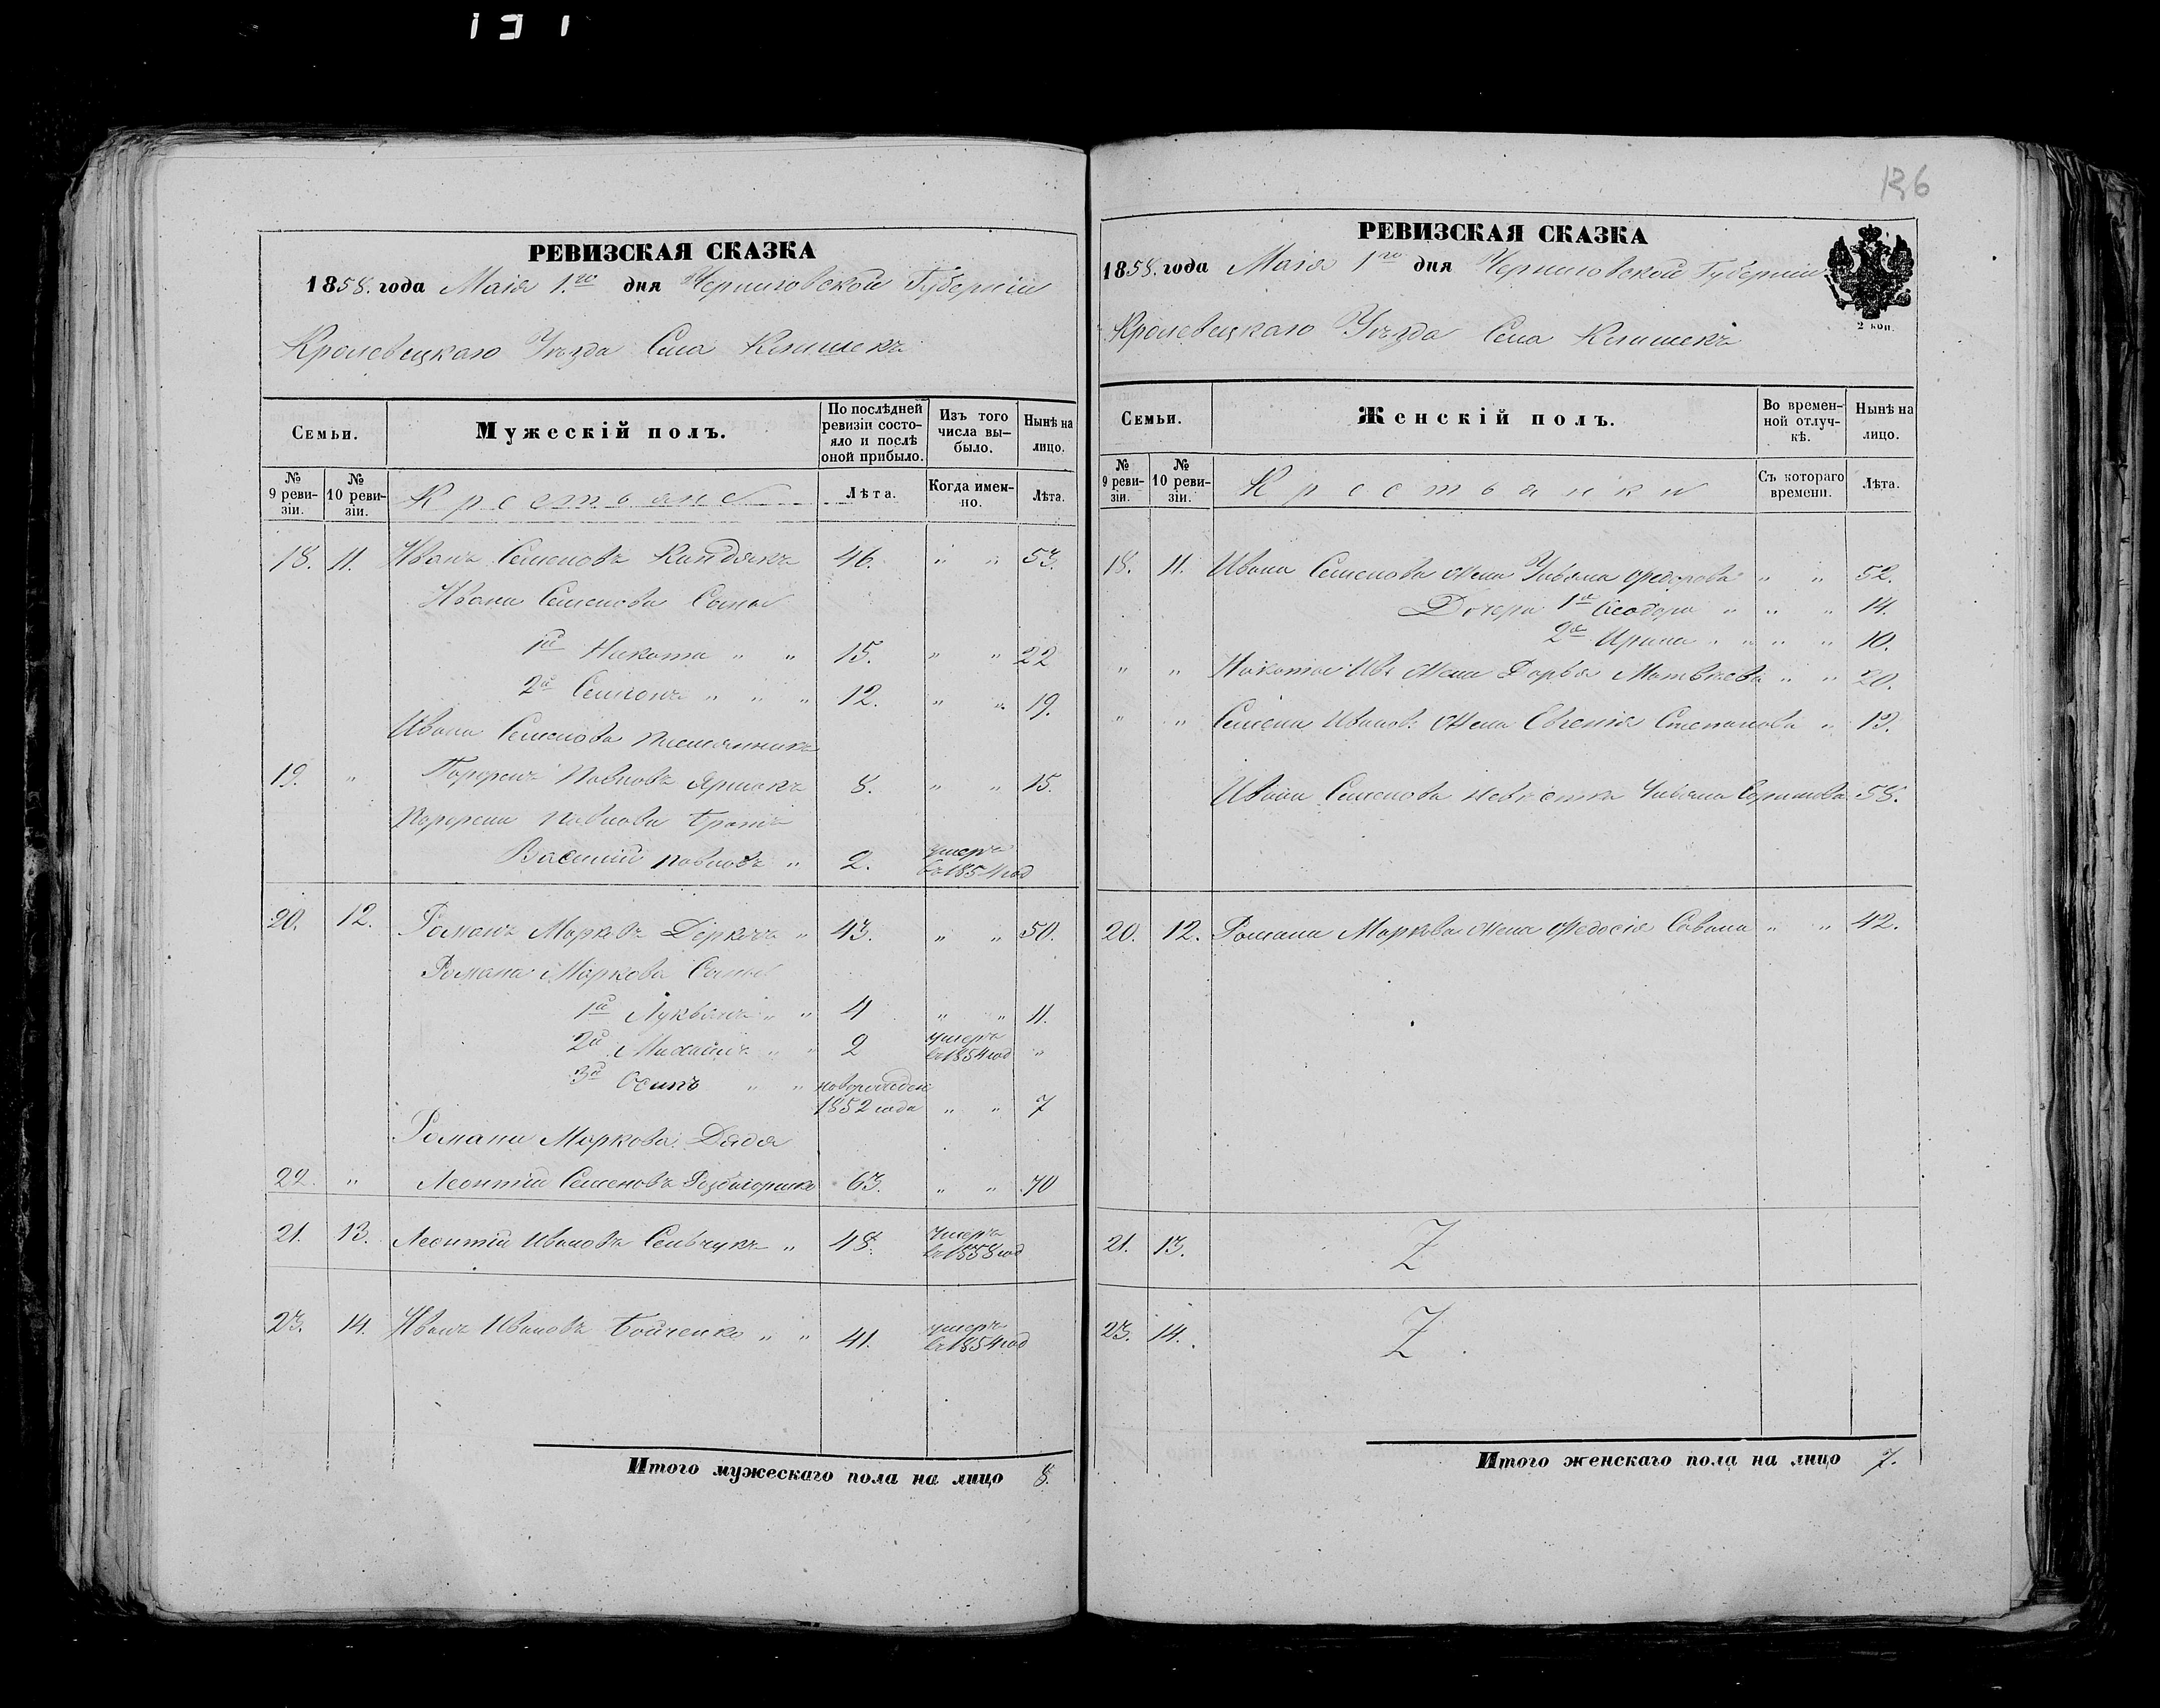 136
РЕВИЗСКАЯ СКАЗКА
1858. года Маія 1.го дня Черниговской Губерніи
Кролевецкаго Уѣзда Села Клишекъ
Семьи.
Мужескій полъ.
По послѣдней ревизіи состояло и послѣ оной прибыло.
Изъ того числа выбыло.
Нынѣ на лицо.
№ 9 ревизіи.
№ 10 ревизіи.
Крестьяне
Лѣта.
Когда именно.
Лѣта.
18. 11. Иванъ Семеновъ 46. " " 53.
Ивана Семенова Сыны
1й Никита " " 15. " " 22
2й Семенъ " " " 12. " " 19.
Ивана Семенова племянникъ
19. " Парфенъ Павловъ 8. " " 15.
Парфена Павлова братъ
Василий Павловъ " 2. умеръ въ 1854 год
20. 12. Романъ Марковъ Деркачъ " 43. " " 50.
Романа Маркова Сыны
1й Лукьянъ " " 4 " " 11.
2й Михаилъ " " 2 умеръ въ 1854 год "
3й Осипъ " " новорожден 1852 года " " 7
Романа Маркова Дядя
22. " Леонтій Семеновъ 63. " " 70
21. 13. Леонтій Ивановъ " 48. умеръ въ 1858 год
23. 14. Иванъ Ивановъ Бойченко " " 41. умеръ въ 1854 год
Итого мужескаго пола на лицо 8.
РЕВИЗСКАЯ СКАЗКА
1858. года Маія 1го дня Черниговской Губерніи
2 коп.
Кролевецкаго Уѣзда Села Клишекъ
Семьи.
Женскій полъ.
Во временной отлучкѣ.
Нынѣ на лицо.
№ 9 ревизіи.
№ 10 ревизіи.
Крестьянки
Съ котораго времени.
Лѣта.
18. 11. Ивана Семенова жена Ульяна Федорова " " 52.
Дочери 1я Феодора " " " 14.
2я Ирина " " " " 10.
" " Никиты Ив. жена Дарья Матвѣева " " 20.
" " Семена Иванов. жена Евгенія Степанова " 19.
Ивана Семенова невѣстка Ульяна 58.
20. 12. Романа Маркова жена Федосія Савина " " 42.
21. 13. Z
23. 14. Z
Итого женскаго пола на лицо 7.